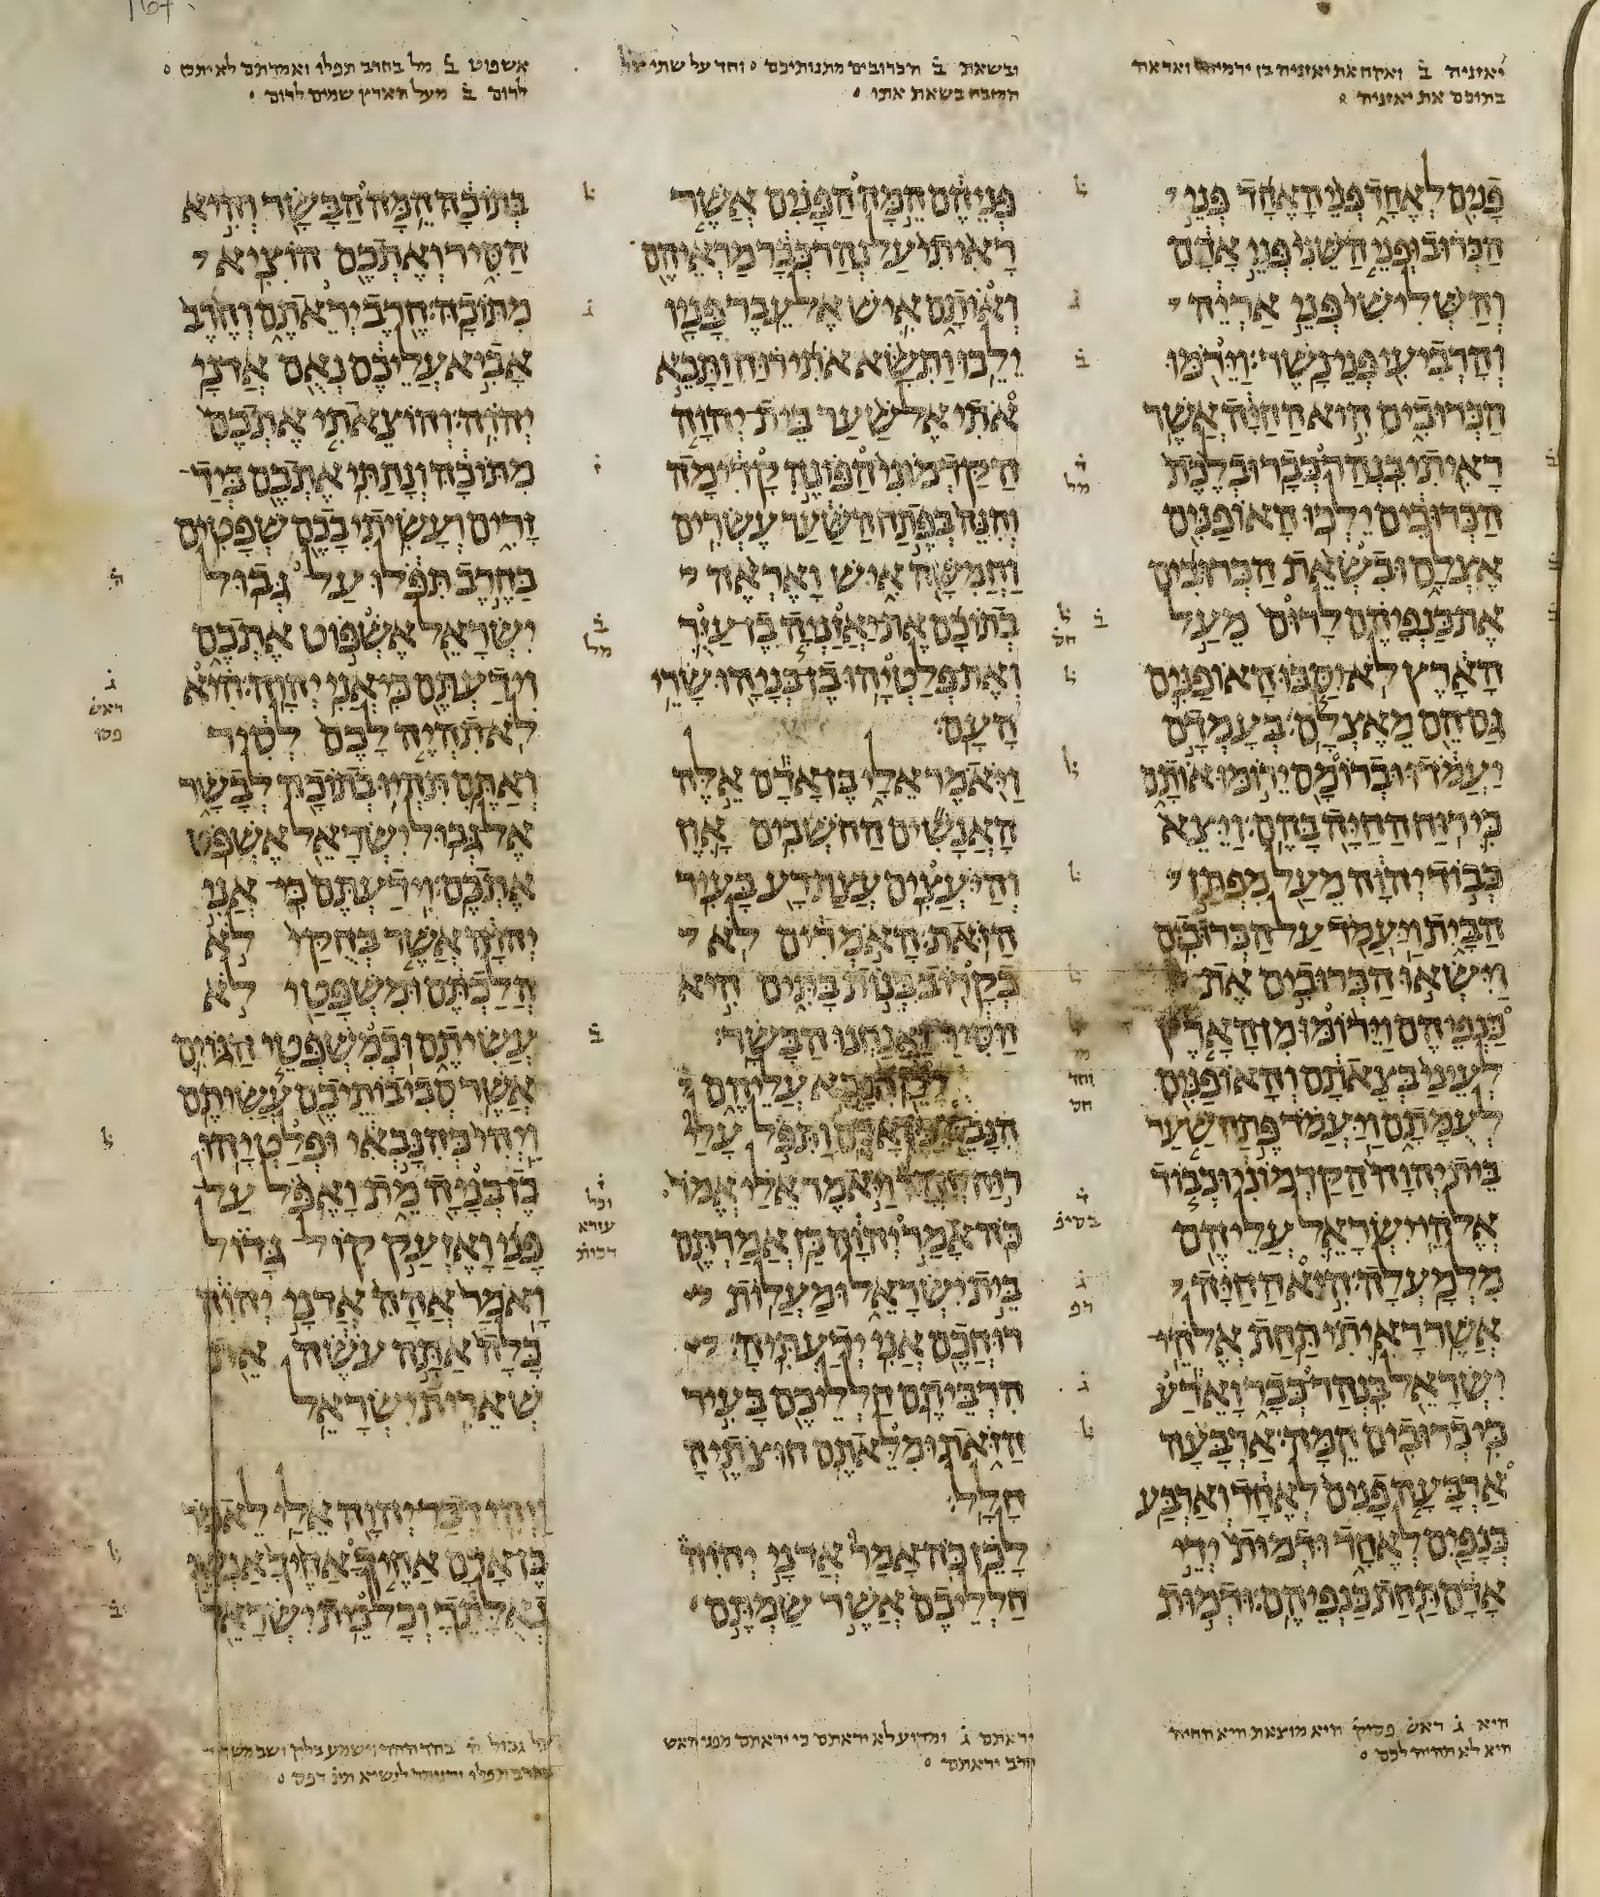 יאזניה ב ואקח את יאזניה בן ירמיהו ואראה
בתוכם את יאזניה
פנים לאחד פני האחד פני
הכרוב ופני השני פני אדם
והשלישי פני אריה
והרביעי פני נשר׃ וירמו
הכרובים היא החיה אשר
ראיתי בנהר כבר׃ ובלכת
הכרובים ילכו האופנים
אצלם ובשאת הכרובים
את כנפיהם לרום מעל
הארץ לא יסבו האופנים
גם הם מאצלם׃ בעמדם
יעמדו וברומם ירומו אותם
כי רוח החיה בהם׃ ויצא
כבוד יהוה מעל מפתן
הבית ויעמד על הכרובים׃
וישאו הכרובים את
כנפיהם וירומו מן הארץ
לעיני בצאתם והאופנים
לעמתם ויעמד פתח שער
בית יהוה הקדמוני וכבוד
אלהי ישראל עליהם
מלמעלה׃ היא החיה
אשר ראיתי תחת אלהי
ישראל בנהר כבר ואדע
כי כרובים המה׃ ארבעה
ארבעה פנים לאחד וארבע
כנפים לאחד ודמות ידי
אדם תחת כנפיהם׃ ודמות
היא ג ראש פסוק היא מוצאת היא החיה
היא לא תהיה לכם
ובשאת ב הכרובים מתנותיכם וחד על שתי
המזבח בשאת אתו
פניהם המה הפנים אשר
ראיתי על נהר כבר מראיהם
ואותם איש אל עבר פניו
ילכו׃ ותשא אתי רוח ותבא
אתי אל שער בית יהוה
הקדמוני הפונה קדימה
והנה בפתח השער עשרים
וחמשה איש ואראה
בתוכם את יאזניה בן עזר
ואת פלטיהו בן בניהו שרי
העם׃
ויאמר אלי בן אדם אלה
האנשים החשבים און
והיעצים עצת רע בעיר
הזאת׃ האמרים לא
בקרוב בנות בתים היא
הסיר ואנחנו הבשר׃
לכן הנבא עליהם
הנבא בן אדם׃ ותפל עלי
רוח יהוה ויאמר אלי אמר
כה אמר יהוה כן אמרתם
בית ישראל ומעלות
רוחכם אני ידעתיה׃
הרביתם חלליכם בעיר
הזאת ומלאתם חוצתיה
חלל׃
לכן כה אמר אדני יהוה
חלליכם אשר שמתם
יראתם ג ומדוע לא יראתם כי יראתם מפני האש
חרב יראתם
אשפוט ב מל בחרב תפלו ואמרתם לא יתכן
לרום ב מעל הארץ שמים לרום
בתוכה המה הבשר והיא
הסיר ואתכם הוציא
מתוכה׃ חרב יראתם וחרב
אביא עליכם נאם אדני
יהוה׃ והוצאתי אתכם
מתוכה ונתתי אתכם ביד
זרים ועשיתי בכם שפטים׃
בחרב תפלו על גבול
ישראל אשפוט אתכם
וידעתם כי אני יהוה׃ היא
לא תהיה לכם לסיר
ואתם תהיו בתוכה לבשר
אל גבול ישראל אשפט
אתכם׃ וידעתם כי אני
יהוה אשר בחקי לא
הלכתם ומשפטי לא
עשיתם וכמשפטי הגוים
אשר סביבותיכם עשיתם׃
ויהי כהנבאי ופלטיהו
בן בניה מת ואפל על
פני ואזעק קול גדול
ואמר אהה אדני יהוה
כלה אתה עשה את
שארית ישראל׃
ויהי דבר יהוה אלי לאמר׃
בן אדם אחיך אחיך אנשי
גאלתך וכל בית ישראל